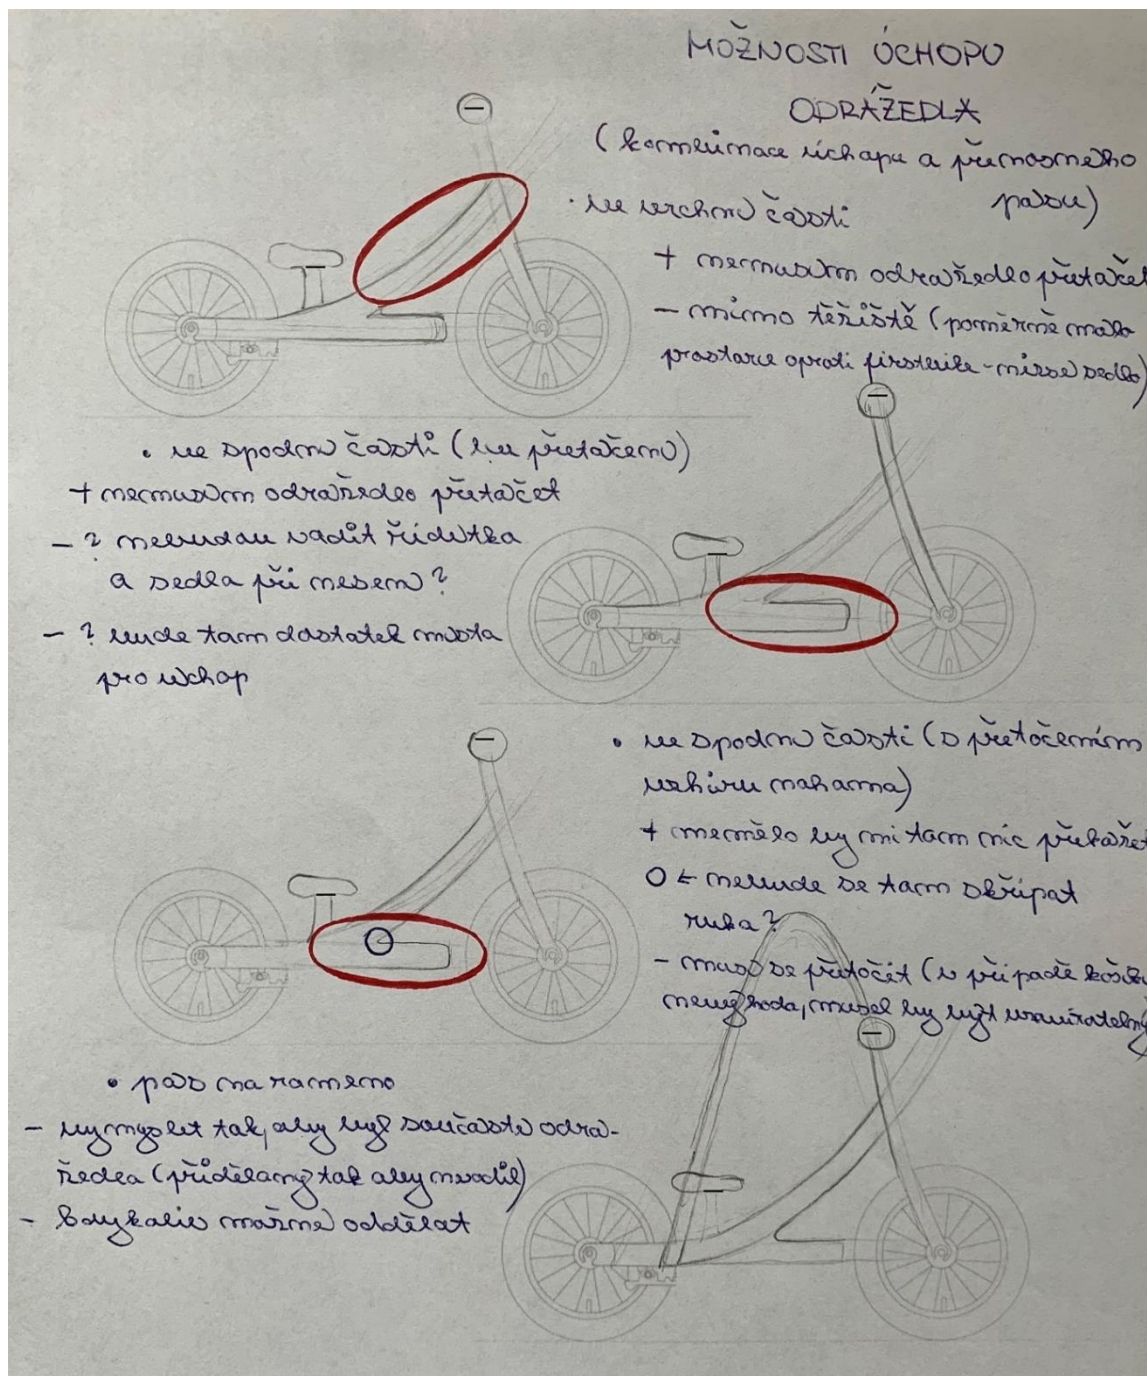 MOŽNOSTI ÚCHOPU
ODRÁŽEDLA
(kombinace úchopu a přenosného
pásu)
• ve vrchní části
+ nemusím odrážedlo přetáčet
- mimo těžiště (poměrně málo
prostoru oproti firstbike - níže sedlo)
• ve spodní části (bez přetáčení)
+ nemusím odrážedlo přetáčet
- ? nebudou vadit řídítka
a sedla při nesení?
- ? bude tam dostatek místa
pro úchop
• ve spodní části (s přetočením
vzhůru nohama)
+ nemělo by mi tam nic překážet
O ← nebude se tam skřípat
ruka?
- musí se přetočit (v případě košíku
nevýhoda, musel by být
• pás na rameno
- vymyslet tak, aby byl součástí odrá-
žedla (přidělaný tak aby nevadil)
- kdykoliv možné oddělat